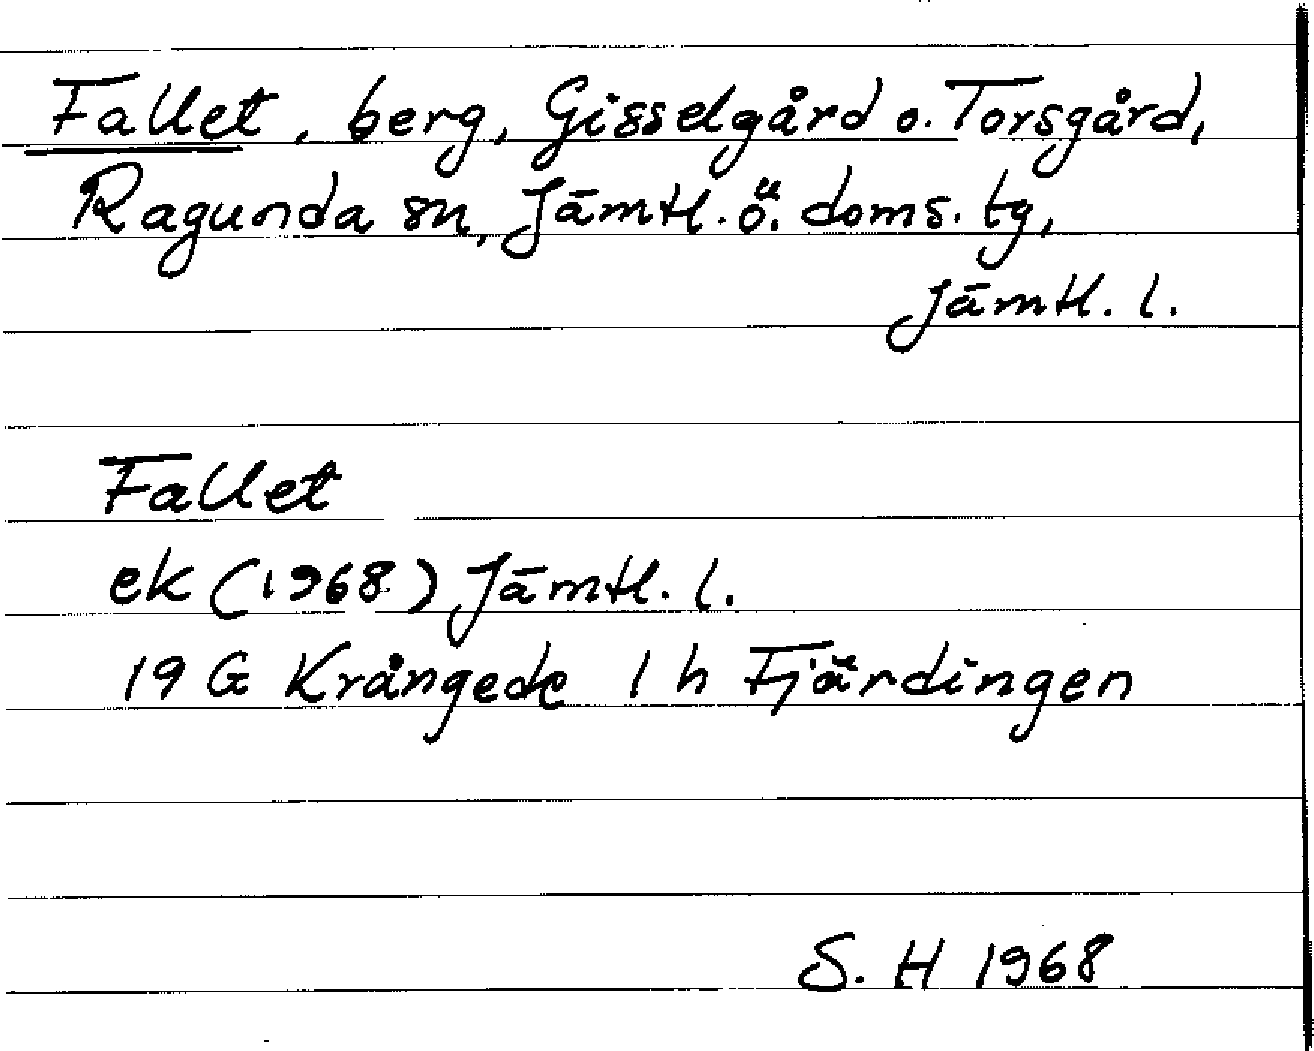 Fallet, berg, Gisselgård o. Torsgård,
Ragunda sn, Jämtl. ö. doms. tg,
Jämtl. l.
Fallet
ek (1968) Jämtl. l.
19 G Krångede 1 h Fjärdingen
S. H 1968